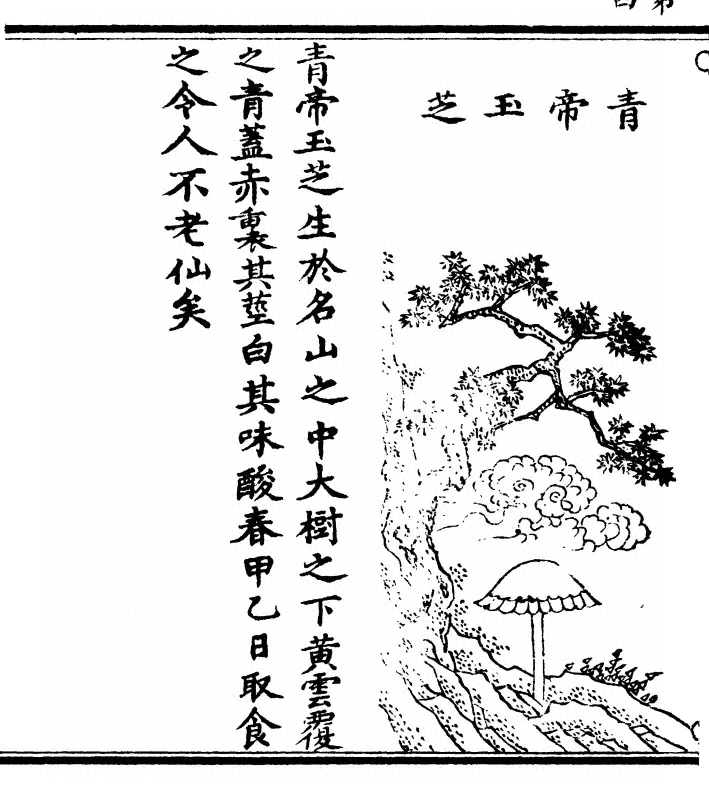 青帝玉芝
青帝玉芝生於名山之中大樹之下黃雲覆
之青蓋赤裏其莖白其味酸春甲乙日取食
之令人不老仙矣